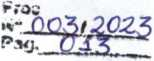 Proc
Nº 003/2023
Pag. 013